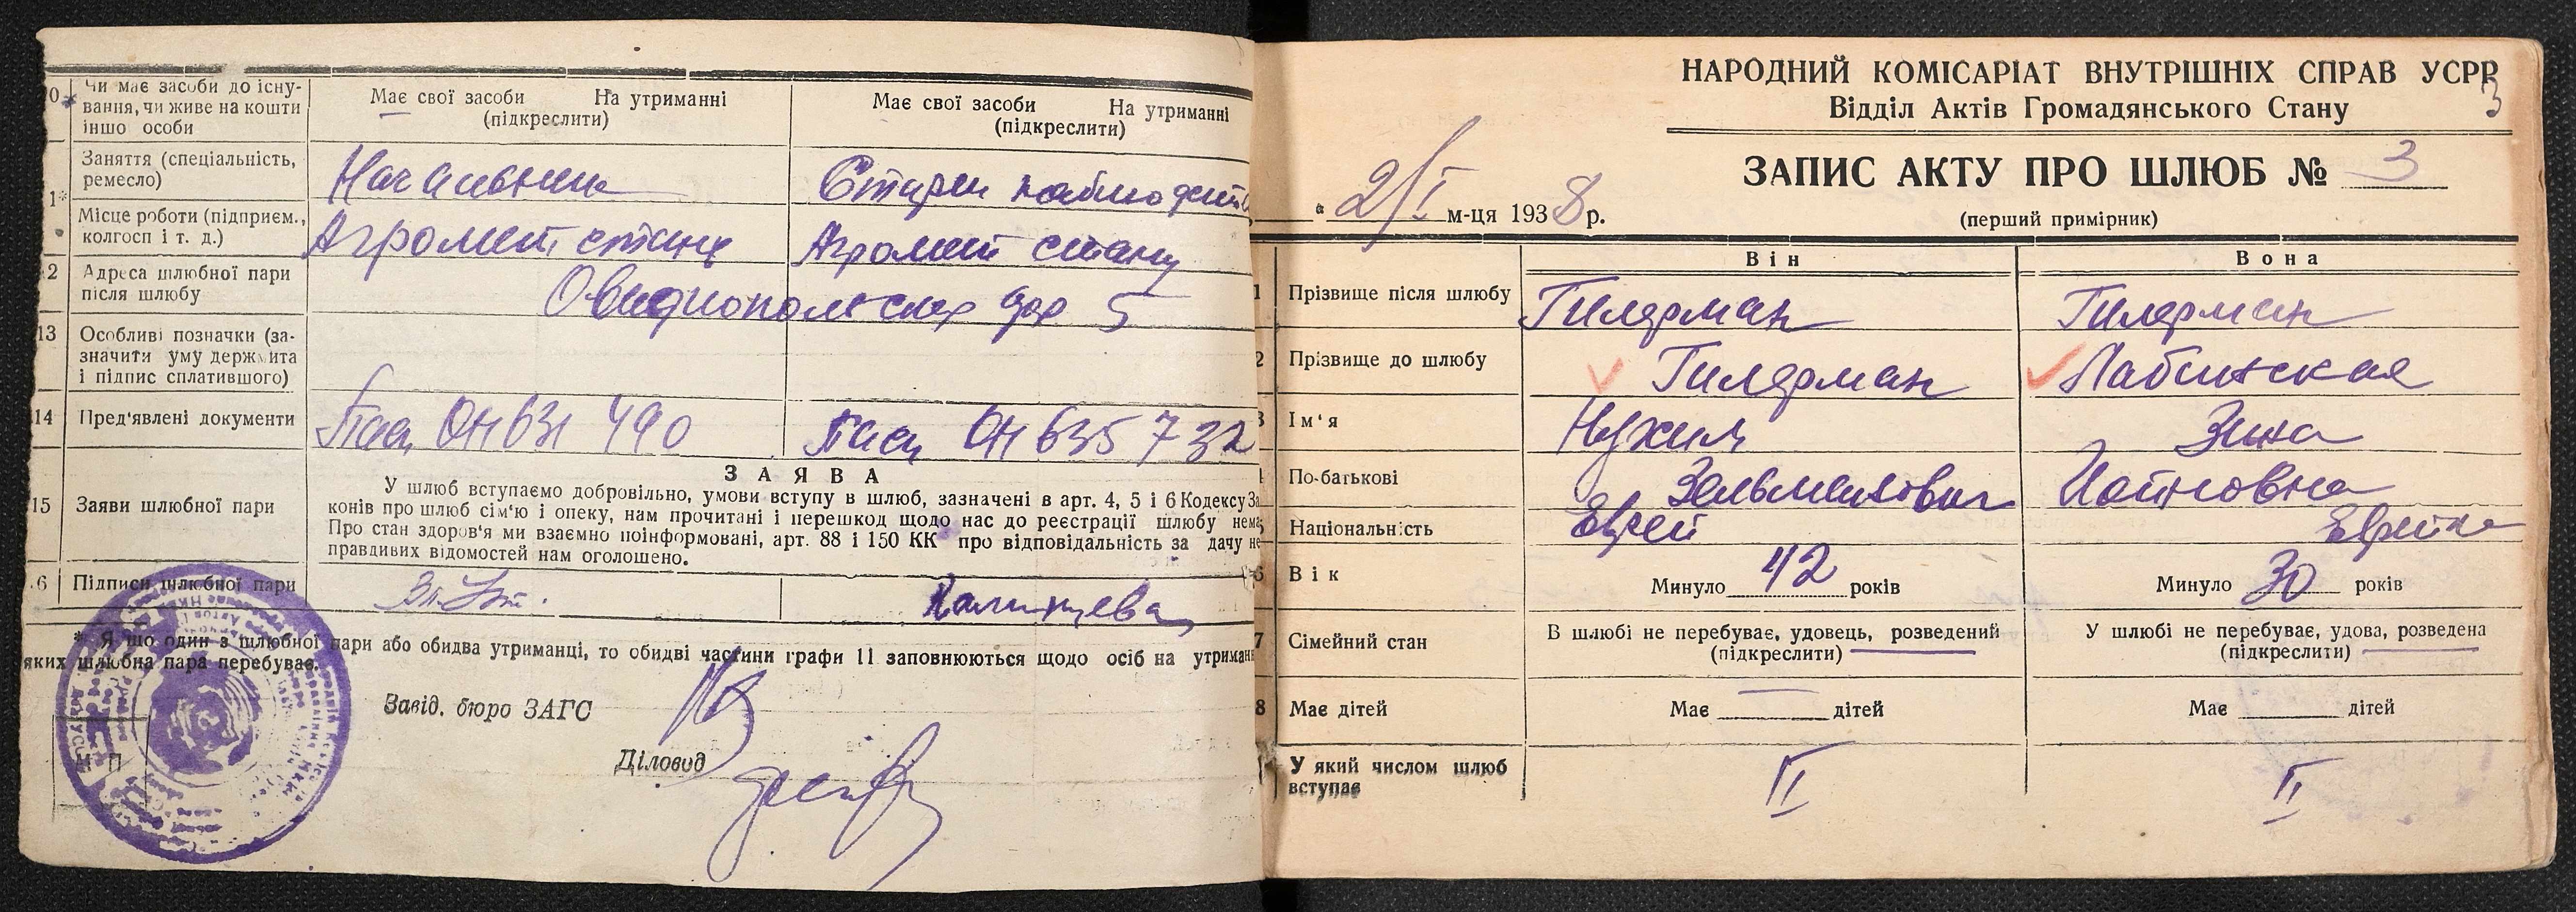 10
Чи має засоби до існу-
вання, чи живе на кошти
іншо особи
Має свої засоби На утриманні
(підкреслити)
Має свої засоби На утриманні
(підкреслити)
11*
Заняття (спеціальність,
ремесло)
Начальник
Старш наблюдат
Місце роботи (підприєм.,
колгосп і т. д.)
Агромет станц
Агромет станц
12
Адреса шлюбної пари
після шлюбу
Овидиопольская дор 5
13
Особливі позначки (за-
значити уму держмита
і підпис сплатившого)
14
Пред'явлені документи
Пасп ОН 631 490
Пасп ОН 635 732
15
Заяви шлюбної пари
ЗАЯВА
У шлюб вступаємо добровільно, умови вступу в шлюб, зазначені в арт. 4, 5 і 6 Кодексу За
конів про шлюб сім'ю і опеку, нам прочитані і перешкод щодо нас до реєстрації шлюбу нема
Про стан здоров'я ми взаємно поінформовані, арт. 88 і 150 КК про відповідальність за дачу не
правдивих відомостей нам оголошено.
16
Підписи шлюбної пари
* Якщо один з шлюбної пари або обидва утриманці, то обидві частини графи 11 заповнюються щодо осіб на утриман
яких шлюбна пара перебуває.
Завід. бюро ЗАГС
Діловод
М П
НАРОДНИЙ КОМІСАРІАТ ВНУТРІШНІХ СПРАВ УСРР
3
Відділ Актів Громадянського Стану
ЗАПИС АКТУ ПРО ШЛЮБ № 3
(перший примірник)
" 2/I м-ця 1938 р.
Він
Вона
1
Прізвище після шлюбу
Гилерман
Гилерман
2
Прізвище до шлюбу
Гилерман
Лабинская
3
Ім'я
Нухим
Зина
4
По-батькові
Зельманович
Иойновна
5
Національність
Еврей
Еврейка
6
Вік
Минуло 42 років
Минуло 30 років
7
Сімейний стан
В шлюбі не перебуває, удовець, розведений
(підкреслити)
У шлюбі не перебуває, удова, розведена
(підкреслити)
8
Має дітей
Має дітей
Має дітей
У який числом шлюб
вступає
II
II